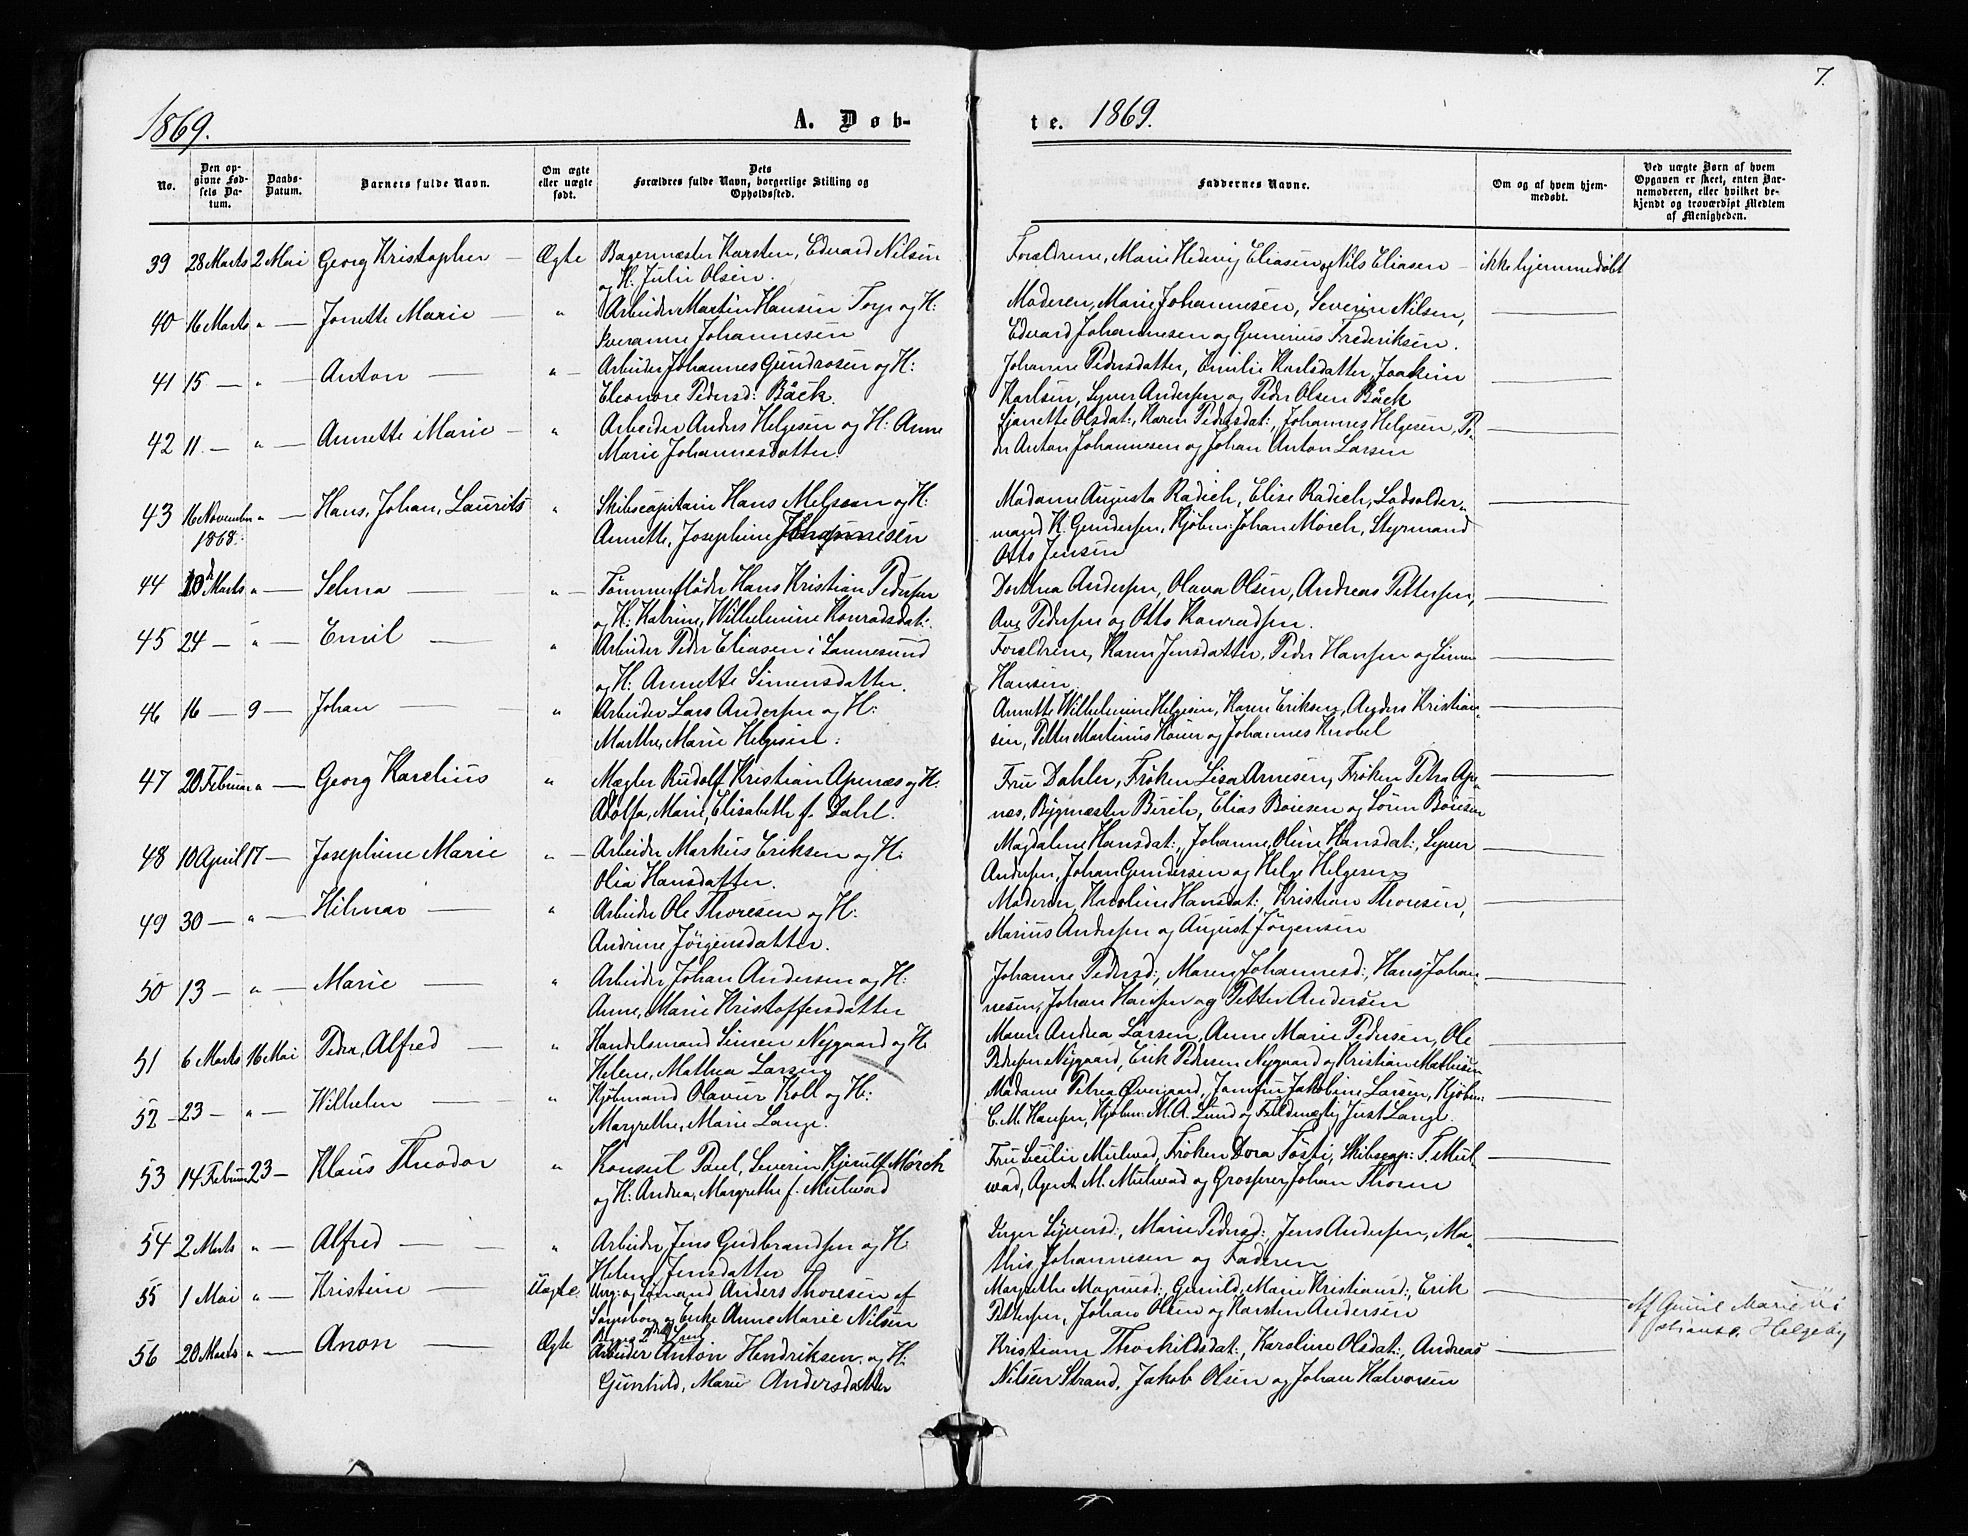 7.
1869.
A. Døb-
te. 1869.
No.
Den op-
givne Fød-
sels Da-
tum.
Daabs-
Datum.
Barnets fulde Navn.
Om ægte
eller uægte
født.
Dets
Forældres fulde Navn, borgerlige Stilling og
Opholdssted.
Faddernes Navne.
Om og af hvem hjem-
medøbt.
Ved uægte Børn af hvem
Opgaven er skeet, enten Bar-
nemoderen, eller hvilket be-
kjendt og troværdigt Medlem
af Menigheden.
39 28 Marts 2 Mai Georg Kristopher — Ægte Bagermæster Karsten, Edvard Nilsen
og H. Julie Olsen.
Forældrene, Marie Hedevig Eliasen og Nils Eliasen — ikke hjemmedøbt
40 16 Marts " — Jonette Marie — " Arbeider Martin Hansen Torp og H:
Johannesen
Moderen, Marie Johannesen, Severin Nilsen,
Edvard Johannesen og Gunerius Frederiksen.
41 15 — " — Anton — " — Arbeider Johannes Gundrosen og H:
Eleonore Pedersd: Bäck.
Johanne Pedersdatter, Emilie Karlsdatter, Joakim
Karlsen, Syver Andersen og Peder Olsen Bäck
42 11 — " — Annette Marie — " Arbeider Anders Helgesen og H: Anne
Marie Johannesdatter.
Olsdat:, Karen Pedersdat:, Johannes Helgesen, Pe-
der Anton Johannesen og Johan Anton Larsen
43 16 November " — Hans, Johan, Laurits " Skibscapitain Hans Melsom og H:
1868.
Annette, Josephine Johannesen
Madame Augusta Radich, Elise Radich, Lodsolder-
mand K. Gundersen, Kjøbm: Johan Mørch, Styrmand
Otto Jensen
44 10 Marts " — Selma — " — Tømmerfløder Hans Kristian Pedersen
og H: Katrine, Wilhelmine Konradsdat:.
Dorthea Andersen, Olava Olsen, Andreas Pettersen,
Ave Pedersen og Otto Konradsen.
45 24 — " — Emil — " Arbeider Peder Eliasen i Sannesund
og H: Annette Simensdatter.
Forældrene, Karen Jensdatter, Peder Hansen og Simen
Hansen.
46 16 — 9 — Johan — " Arbeider Lars Andersen og H:
Marthe, Marie Helgesen:
Annette Wilhelmine Helgesen, Karen Eriksen, Anders Kristian-
sen, Petter Martinius og Johannes Knobel
47 20 Februar " — Georg Karelius " Mægler Rudolf Kristian Apenæs og H:
Adolfa, Marie, Elisabeth f. Dahl.
Fru Dahler, Frøken Lisa Arnesen, Frøken Petra Ape-
næs, Bygmæster Birch, Elias Boiesen og Søren Boiesen
48 10 April 17 — Josephine Marie " — Arbeider Markus Eriksen og H:
Olia Hansdatter.
Magdalene Hansdat:, Johanne, Oline Hansdat:, Syver
Andersen, Johan Gundersen og Helge Helgesen
49 30 — " — Hilmar — " Arbeider Ole Thoresen og H:
Andrine Jörgensdatter.
Moderen, Karoline Hansdat:, Kristian Thoresen,
Marius Andersen og August Jörgensen
50 13 — " — Marie — " Arbeider Johan Andersen og H:
Anne, Marie Kristoffersdatter
Johanne Pedersd:, Maren Johannesd:, Hans Johan-
nesen, Johan Hansen og Petter Andersen
51 6 Marts 16 Mai Peder, Alfred — " Handelsmand Simen Nygaard og H:
Helene, Mathea Larsen
Maren Andrea Larsen, Anne Marie Pedersen, Ole
Pedersen Nygaard, Erik Pedersen Nygaard og Kristian Mathisen
52 23 — " — Wilhelm — " Kjøbmand Olavus Koll og H:
Margrethe, Marie Lange.
Madame Petrea Øvergaard, Jomfru Jakobine Larsen, Kjøbm:
C. M. Hansen, Kjøbm: M. A. Lund og Fuldmægtig Just Lange.
53 14 Februar 23 — Klaus Theodor " Konsul Paul, Severin Kjerulf Mørch
og H: Andrea, Margrethe f. Mulvad
Fru Cecilie Mulvad, Frøken Dora Tosti, Skibscap: T. Mul-
vad, Agent M. Mulvad og Grosserer Johan Thoresen
54 2 Marts " — Alfred — " Arbeider Jens Gudbrandsen og H:
Helene Jensdatter
Inger Syversd:, Marie Pedersd:, Jens Andersen, Ma-
this Johannesen og Faderen
55 1 Mai " — Kristine — Uægte Ung: og Sømand Anders Thoresen af
Sarpsborg og Enke Anne Marie Nilsen
Margrethe Magnusd:, Gunild, Marie Kristiansd:, Erik
Pettersen, Johan Olsen og Karsten Andersen
Af Gunil Marie
Helgeby
56 20 Marts " — Anon — Ægte Arbeider Anton Hendriksen og H:
Gunhild, Marie Andersdatter
Kristiane Thorkildsdat:, Karoline Olsdat:, Andreas
Nilsen Strand, Jakob Olsen og Johan Halvorsen